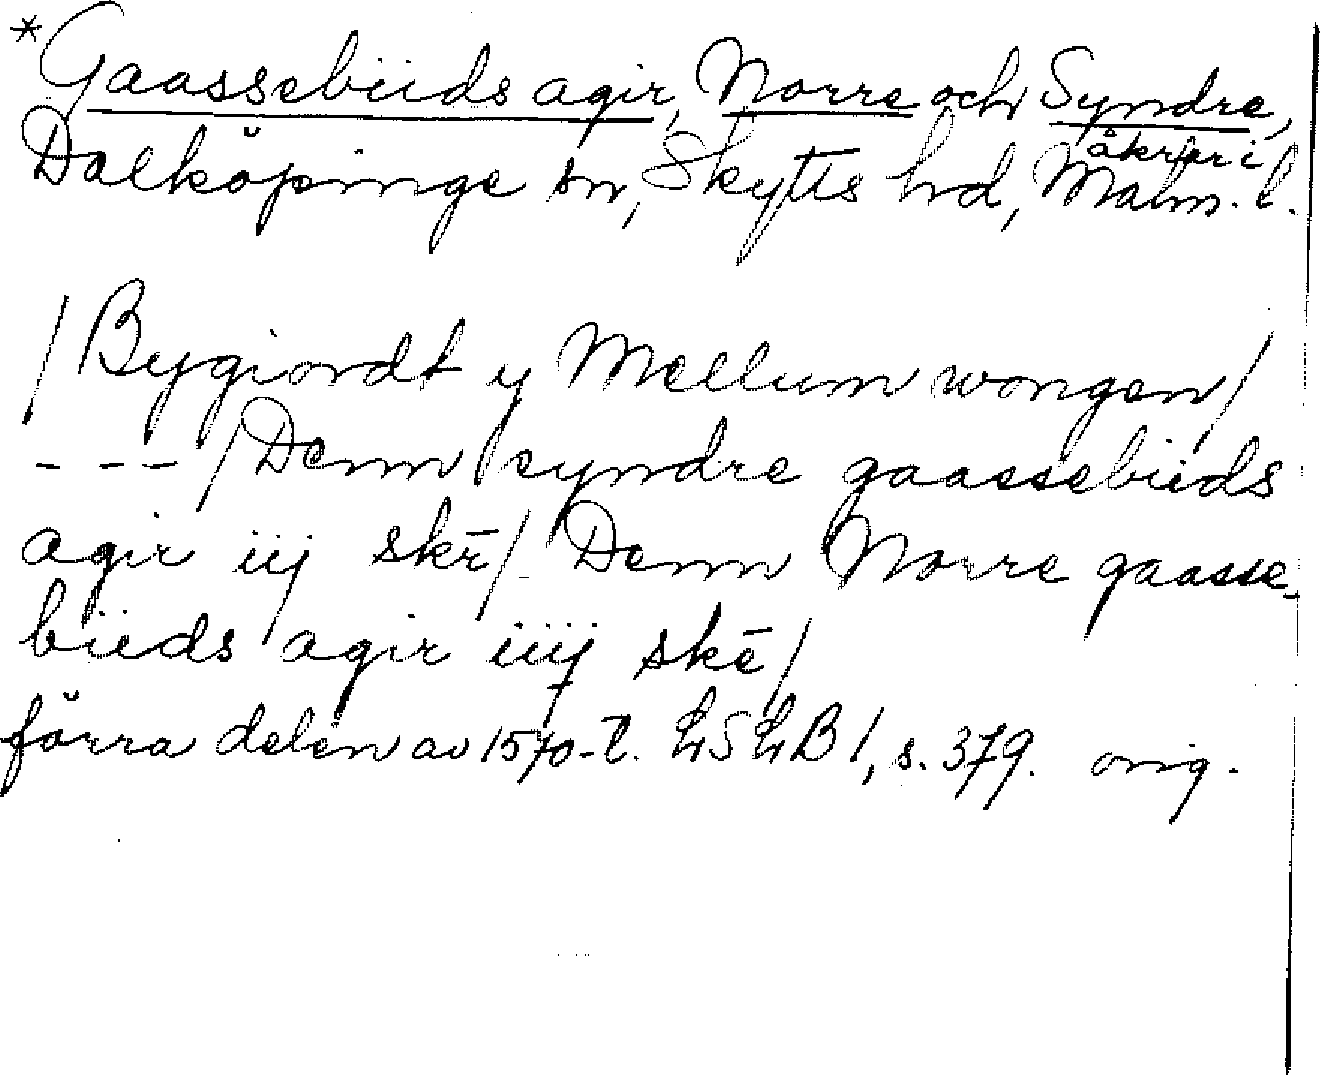 *Gaassebüds agir, Norre och Syndre,
åkrar i
Dalköpinge sn, Skytts hd, Malm. l.
/ Bygiordt y Mellum wongen /
- - - / Denn syndre gaassebüds
agir iij skē / Denn Norre gaasse-
büds agir iiij skē /
förra delen av 1570-t. LSLB 1, s. 379. orig.